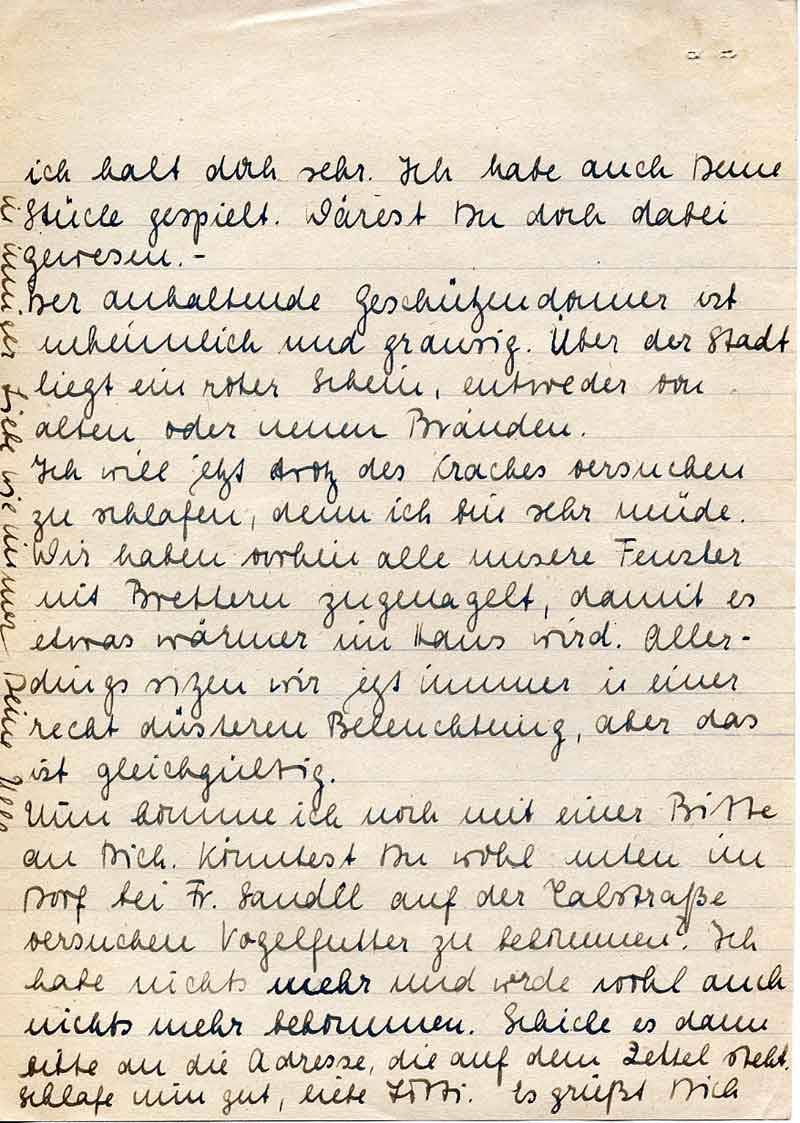 ich halt doch sehr. Ich habe auch Deine
Stücke gespielt. Wärest Du doch dabei
gewesen.-
Der anhaltende Geschützendonner ist
unheimlich und grausig. Über der Stadt
liegt ein roter Schein, entweder von
alten oder neuen Bränden.
Ich will jetzt trotz des Kraches versuchen
zu schlafen, denn ich bin sehr müde.
Wir haben vorhin alle unsere Fenster
mit Brettern zugenagelt, damit es
etwas wärmer im Haus wird. Aller-
dings sizen wir jezt immer in einer
recht düsteren Beleuchtung, aber das
ist gleichgültig.
Nun komme ich noch mit einer Bitte
an Dich. Könntest Du wohl unten im
Dorf bei Fr. Sandll auf der Talstraße
versuchen Vogelfutter zu bekommen? Ich
habe nichts mehr und werde wohl auch
nichts mehr bekommen. Schicke es dann
bitte an die Adresse, die auf dem Zettel steht.
Schlafe nun gut, liebe Lotti. Es grüßt Dich
in inniger Liebe wie immer Deine Ulla